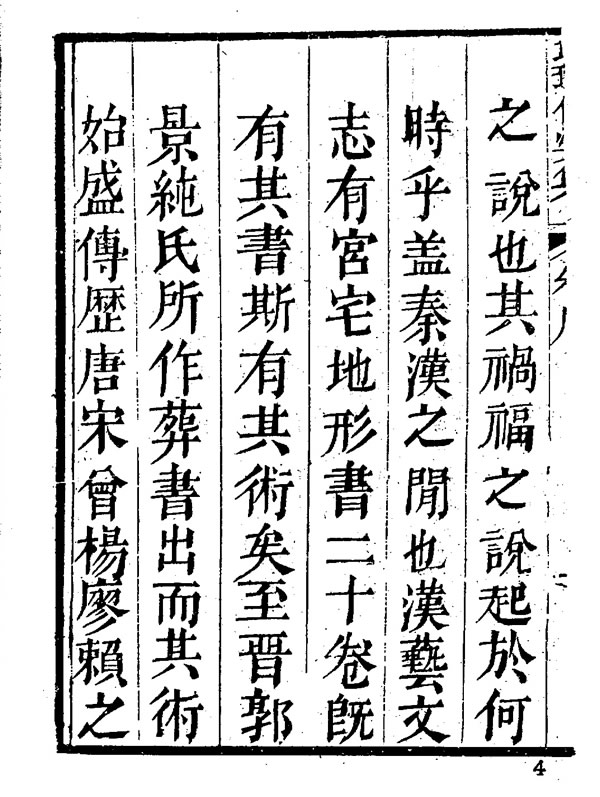 之說也其禍福之說起於何
時乎盖秦漢之間也漢藝文
志有宮宅地形書二十卷旣
有其書斯有其術矣至晉郭
景純氏所作葬書出而其術
始盛傳歷唐宋曾楊廖賴之
4